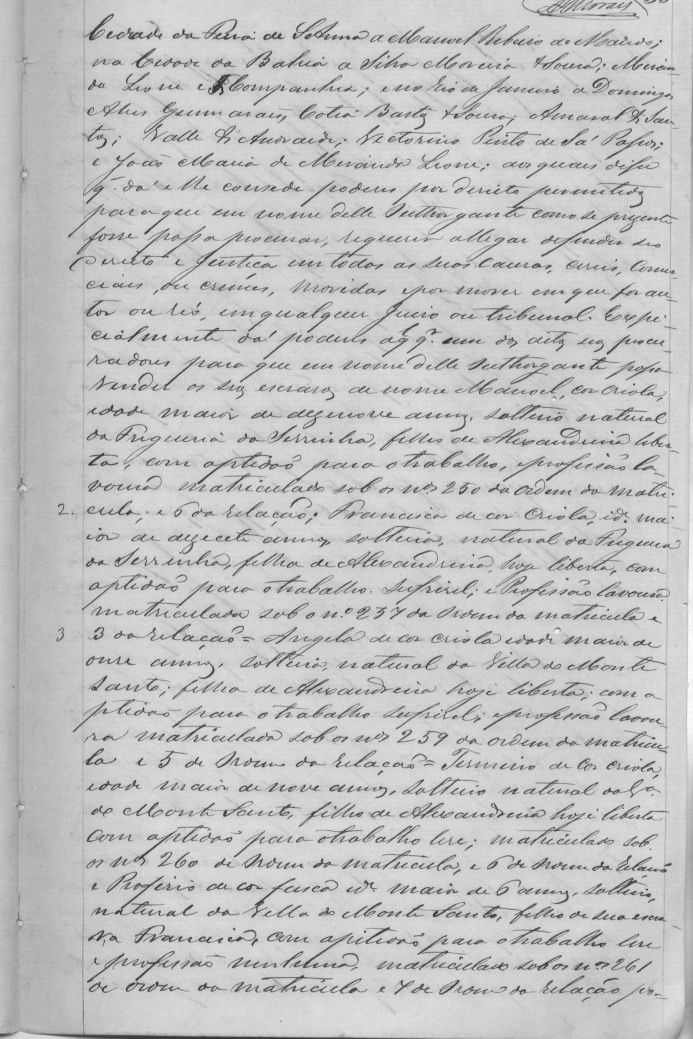 Cidade da Feira de Sta Anna a Manoel Ribeiro de Macedo;
na Cidade da Bahia a Silva Moreira & Souza; Miran
da Leone e Companhia; e no Rio de Janeiro a Domingos
Alves Guimarães, Cotia Bastos & Souza; Amaral & San
tos; Valle & Andrade; Victorino Pinto de Sá Passos;
e João Maria de Miranda Leone; aos quais disse
q. dá e lhe consede poderes por dereito permetidos
para que em nome delle Outhorgante como se prezente
fosse possa procurar, requerer allegar defender seo
Direito e Justiça em todas as suas Causas, civeis, Comer
ciais, ou crimes, movidas e por mover em que for au
tor ou réo, em qualquer Juizo ou tribunal. Espe
cialmente dá poderes a q.q.r um dos ditos seos procu
radores para que em nome delle Outhorgante possa
vender os seos escravos de nome Manoel, cor Criola,
idade maior de dezenove annos, solteiro natural
da Freguezia da Serrinha, filho de Alexandreina liber
ta, com aptidão para o trabalho, e profissão la
voura matriculado sob os nos 250 da ordem da matri
2. cula, e 6 da relação; Francisca de cor Criola, ide mai
ior de dezecete annos, solteira, natural da Freguezia
da Serrinha, filha de Alexandreina, hoje liberta, com
aptidão para o trabalho. Sufrivel; e Profissão lavoura
matriculada sob o n.o 257 da Ordem da matricula e
3 3 da relação = Angela de cor criola idade maior de
onze annos, solteira, natural da Villa do Monte
Santo; filha de Alexandreina hoje liberta; com a
ptidão para o trabalho sufrivel; e profissão lavou
ra matriculada sob os nos 259 da ordem da matricu
la e 5 de Ordem da Relação = de cor Criola,
idade maior de nove annos, solteiro natural da Va
do Monte Santo, filho de Alexandreina hoje liberta
com aptidão para o trabalho leve; matriculado sob.
os nos 260 de Ordem da matricula, e 6 de Ordem da Relação
e Profirio de cor fusca ide maior de 6 annos, solteiro,
natural da Villa do Monte Santo, filho de sua escra
va Francisca, com aptidão para o trabalho leve
e profissão ninhuma, matriculado sob os nos 261
de ordem da matricula e 7 de Ordem da Relação po-